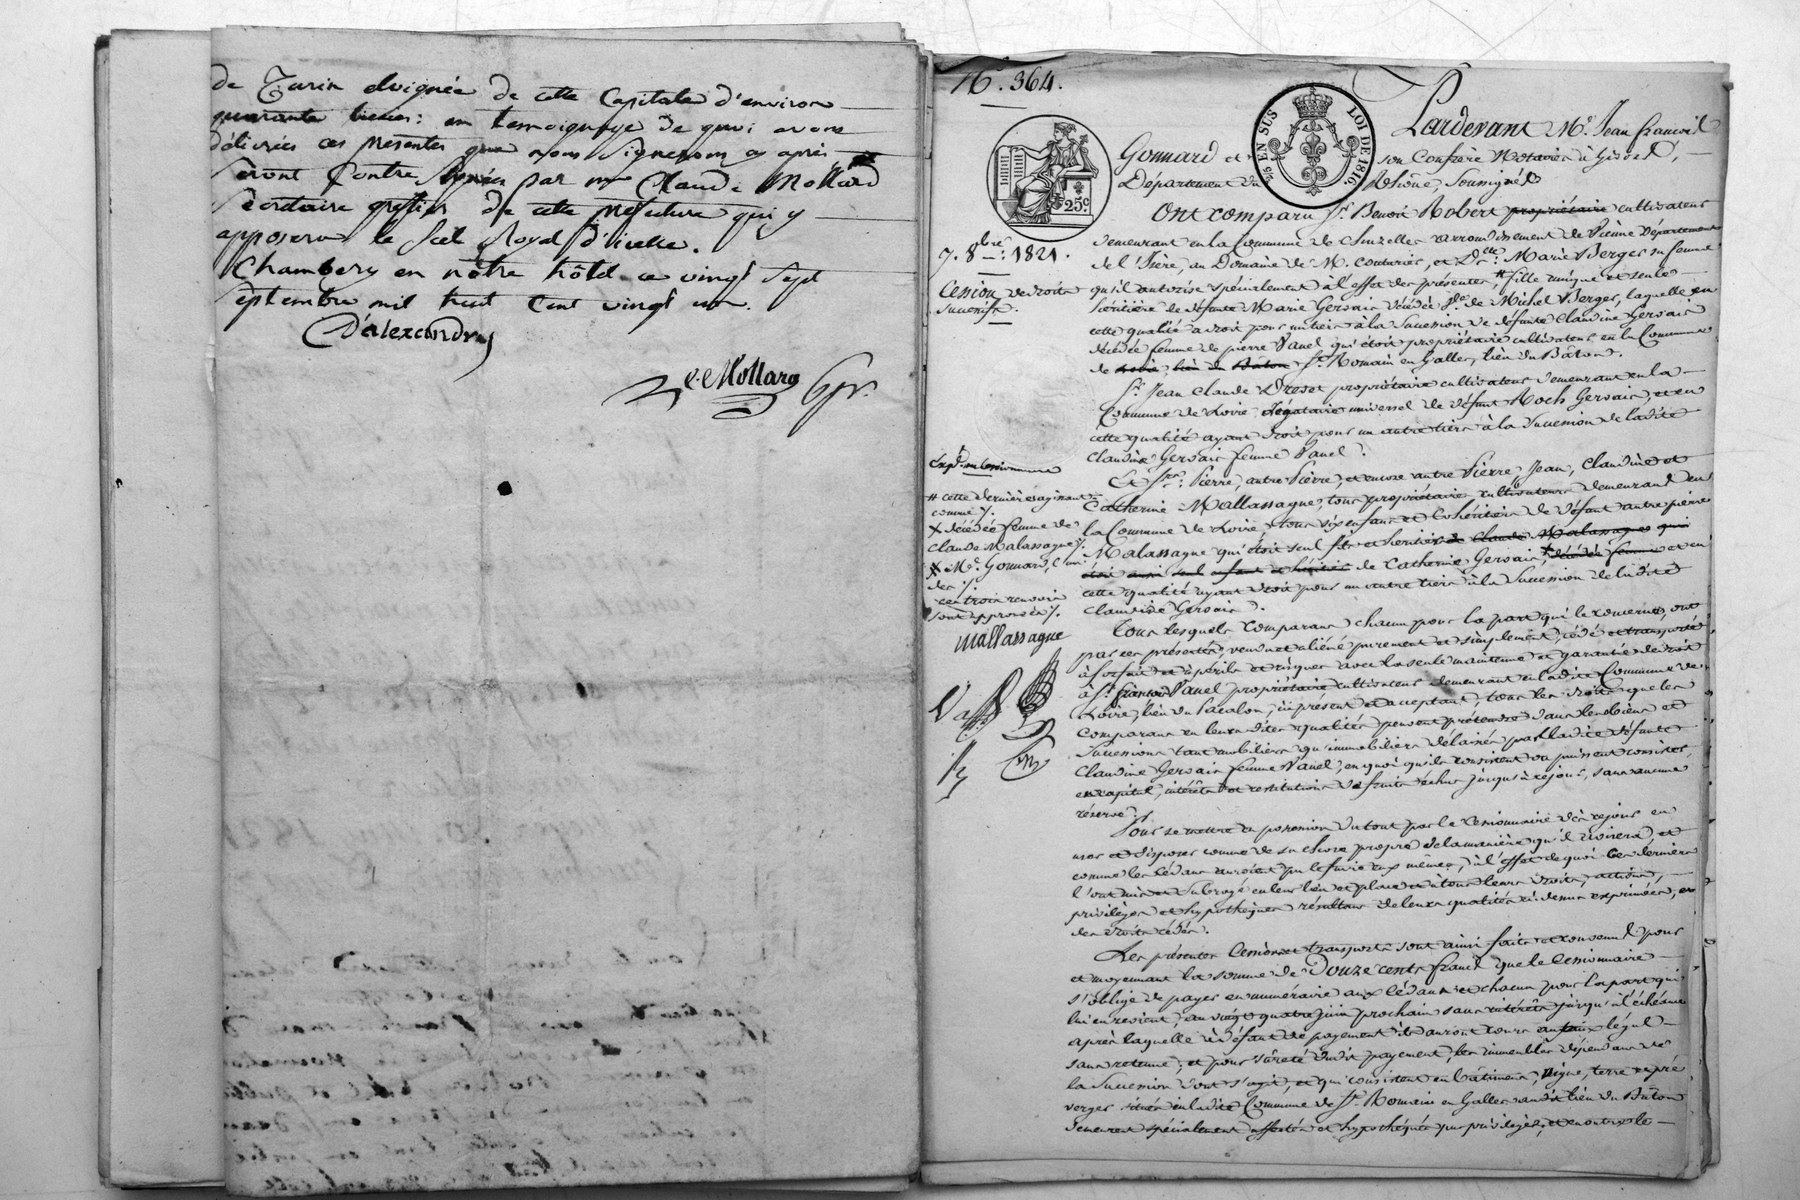 de Turin eloignée de cette Capitale d'environ
quarante lieues: en temoignage de quoi avons
délivrées ces presentes que nous signerons cy après
seront Contre Signées par me Claude Mollard
Secrétaire greffier de cette Préfecture qui y
apposera le Scel Royal d'icelle.
Chambery en nôtre hôtel ce vingt Sept
Septembre mil huit Cent vingt un.
D'alexandry
C. Mollard
No. 364.
25 EN SUS LOI DE 1816.
25c
7. 8bre. 1821.
Cession de droits
successifs.
Pardevant Me. Jean francois
Gonnard et son Confrère Notaires à Givors,
Département du Rhône, Soussignés
Ont comparu Sr. Benoit Robert propriétaire cultivateur
demeurant en la Commune de Chuzelles arrondissement de Vienne Département
de l'Isère, au Domaine de M. Couturier, et De. Marie Berger sa femme
qu'il autorise spécialement à l'effet des présentes, # fille unique et seule
héritière de défunte Marie Gervais décédée fe. de Michel Berger, laquelle en
cette qualité a droit pour un tiers à la Succession de défunte Claudine Gervais
décédée femme de pierre Vanel qui étoit propriétaire cultivateur en la Commune
de Loire, lieu du Bâton St. Romain en Galles, lieu du Bâton.
Sr. Jean Claude Drevet propriétaire cultivateur demeurant en la
Commune de Loire, légataire universel de défunt Roch Gervais, et en
cette qualité ayant droit pour un autre tiers à la Succession de ladite
Claudine Gervais femme Vanel.
Et Srs. Pierre, autre Pierre, et encore autre Pierre, Jean, Claudine et
Catherine Mallassagne, tous propriétaires cultivateurs demeurant en
la Commune de Loire, tous six enfans et Cohéritiers de défunt autre pierre
Malassagne qui étoit seul fils et héritier de Claude Malassagne qui
étoit aussi seul enfant et héritier de Catherine Gervais, décédée femme et en
cette qualité ayant droit pour un autre tiers à la Succession de ladite
Claudine Gervais.
# cette dernière agissant
comme /.
X décédée femme de
Claude Malassagne /.
X Me. Gonnard, l'un
des /.
ces trois renvois
sont approuvés /.
Mallassagne
Tous lesquels comparans chacun pour la part qui le concerne, ont
par ces présentes, vendu et aliéné purement et simplement, cédé et transporté
à forfait et à périls et risques avec la seule maintenue et garantie de droit
à Sr. francois Vanel propriétaire cultivateur demeurant en ladite Commune de
Loire, lieu du Pacalon, ici présent et acceptant, tous les droits que les
comparans en leurs dites qualités peuvent prétendre dans les biens et
Succession tant mobiliers qu'immobiliers délaissés par ladite défunte
Claudine Gervais femme Vanel, en quoi qu'ils consistent ou puissent consister,
en capital, intérêts et restitutions de fruits échus jusqu'à ce jour, sans aucune
réserve.
Pour se mettre en possession du tout par le cessionnaire dès ce jour, en
user et disposer comme de sa chose propre de la manière qu'il avisera, et
comme les Cédans auroient pu le faire eux mêmes, à l'effet de quoi Ces derniers
l'ont mis et subrogé en leur lieu et place et à tous leurs droits, actions,
privilèges et hypothèques résultans de leurs qualités ci dessus exprimées, et
des droits cédés.
Les présentes Cession et transports sont ainsi faits et convenus pour
et moyennant la somme de Douze cents francs que le Cessionnaire
s'oblige de payer en numéraire aux Cédans et chacun pour la part qui
lui en revient, au vingt quatre juin prochain sans intérêts jusqu'à l'échéance
après laquelle à défaut de payement ils auront cours au taux légal
sans retenue; et pour sûreté dudit payement, les immeubles dépendans de
la Succession dont s'agit, et qui consistent en bâtimens, vigne, terre et pré
verger situés en ladite Commune de St. Romain en Galles audit lieu du Bâton
demeurent spécialement affectés et hypothéqués par privilège, et en outre le